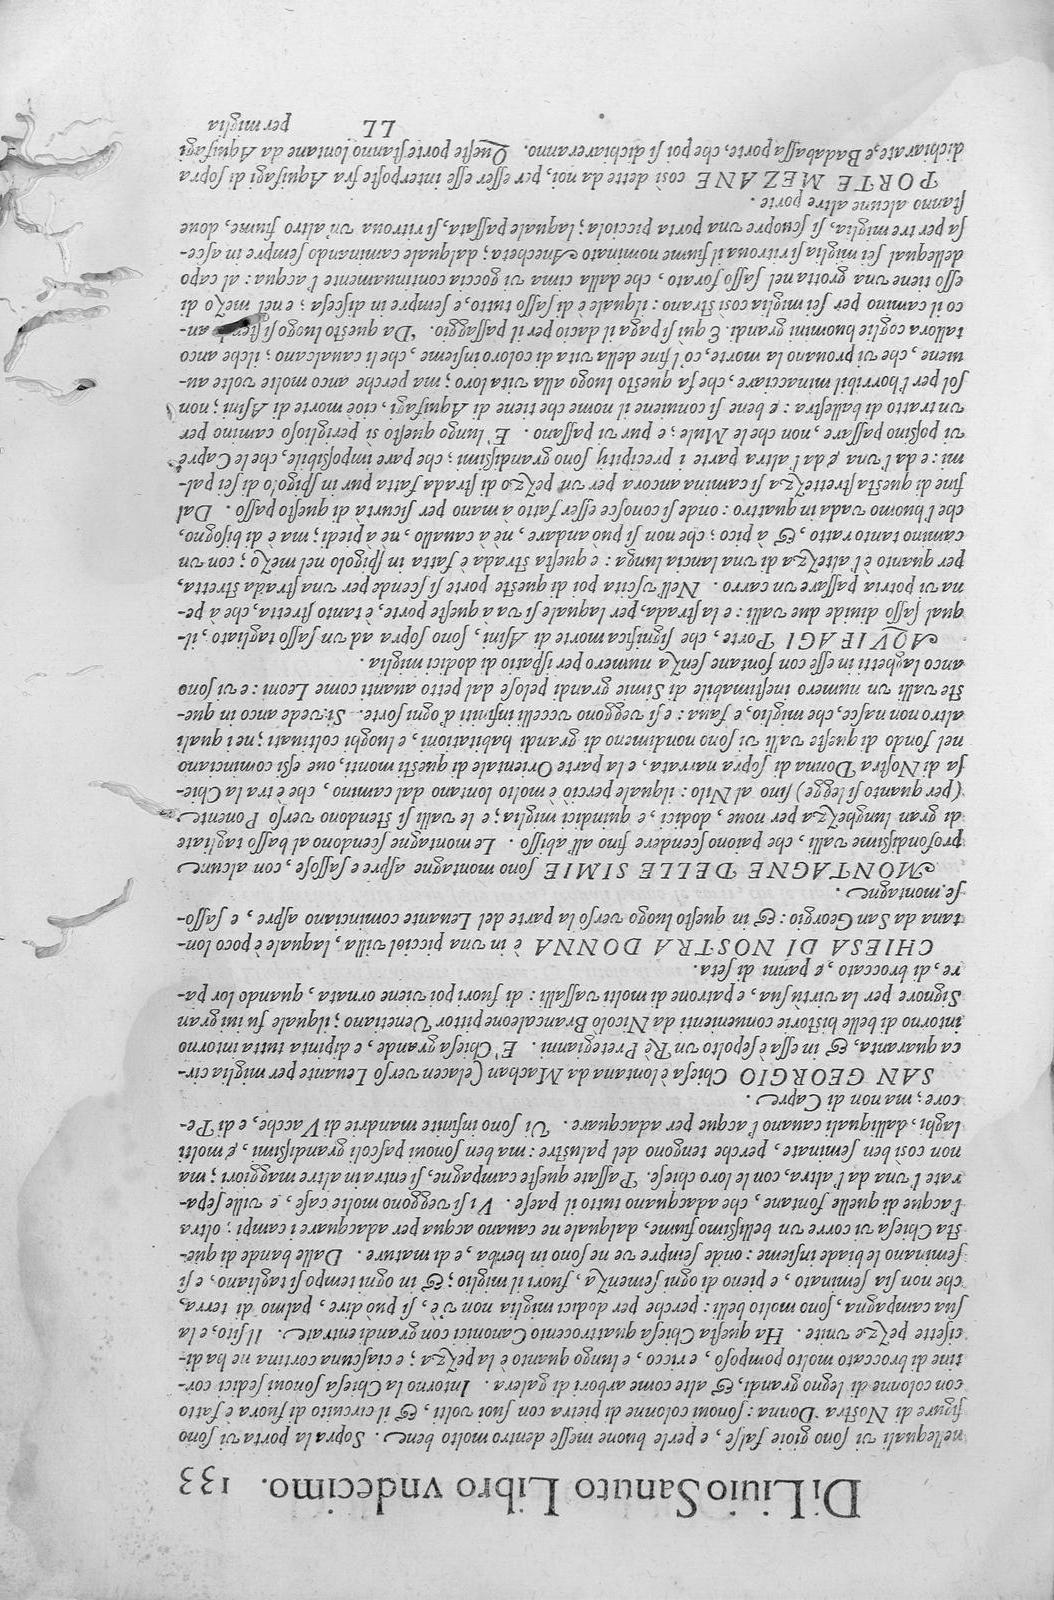 Di Liuio Sanuto Libro vndecimo. 133
nellequali vi sono gioie false, e perle buone messe dentro molto bene. Sopra la porta vi sono
figure di Nostra Donna: sonoui colonne di pietra con suoi volti, & il circuito di fuora è fatto
con colonne di legno grandi, & alte come arbori di galera. Intorno la Chiesa sonoui sedici cor-
tine di broccato molto pomposo, e ricco, e lungo quanto è la pezza; e ciascuna cortina ne ha di-
cisette pezze vnite. Ha questa Chiesa quattrocento Canonici con grandi entrate. Il sito, e la
sua campagna, sono molto belli: perche per dodici miglia non v'è, si può dire, palmo di terra,
che non sia seminato, e pieno di ogni semenza, fuori il miglio; & in ogni tempo si tagliano, e si
seminano le biade insieme: onde sempre ve ne sono in herba, e di mature. Dalle bande di que-
sta Chiesa vi corre vn bellissimo fiume, dalquale ne cauano acqua per adacquare i campi; oltra
l'acque di quelle fontane, che adacquano tutto il paese. Vi si veggono molte case, e ville sepa-
rate l'vna da l'altra, con le loro chiese. Passate queste campagne, si entra in altre maggiori; ma
non così ben seminate, perche tengono del palustre: ma ben sonoui pascoli grandissimi, e molti
laghi, dalliquali cauano l'acque per adacquare. Vi sono infinite mandrie di Vacche, e di Pe-
core; ma non di Capre.
SAN GEORGIO Chiesa è lontano da Machan Celacen verso Leuante per miglia cir-
ca quaranta, & in essa è sepolto vn Rè Pretegianni. E' Chiesa grande, e dipinta tutta intorno
intorno di belle historie conuenienti da Nicolo Brancaleone pittor Venetiano; ilquale fu iui gran
Signore per la virtù sua, e patrone di molti vassalli: di fuori poi viene ornata, quando lor pa-
re, di broccato, e panni di seta.
CHIESA DI NOSTRA DONNA è in vna picciol villa, laquale è poco lon-
tana da San Georgio: & in questo luogo verso la parte del Leuante cominciano aspre, e sasso-
se montagne.
MONTAGNE DELLE SIMIE sono montagne aspre e sassose, con alcune
profondissime valli, che paiono scendere fino all'abisso. Le montagne scendono al basso tagliate
di gran lunghezza per noue, dodici, e quindici miglia; e le valli si stendono verso Ponente
(per quanto si legge) sino al Nilo: ilquale perciò è molto lontano dal camino, che è tra la Chie-
sa di Nostra Donna di sopra narrata, e la parte Orientale di questi monti, oue essi cominciano
nel fondo di queste valli vi sono nondimeno di grandi habitationi, e luoghi coltiuati; nei quali
altro non nasce, che miglio, e faua: e si veggono vccelli infiniti d'ogni sorte. Si vede anco in que-
ste valli vn numero inestimabile di Simie grandi pelose dal petto auanti come Leoni: e vi sono
anco laghetti in esse con fontane senza numero per ispatio di dodici miglia.
AQVIEAGI Porte, che significa morte di Asini, sono sopra ad vn sasso tagliato, il-
qual sasso diuide due valli: e la strada, per laquale si va a queste porte, è tanto stretta, che à pe-
na vi potria passare vn carro. Nell'vscita poi di queste porte si scende per vna strada stretta,
per quanto è l'altezza di vna lancia lunga: e questa strada è fatta in spigolo nel mezo; con vn
camino tanto ratto, & à pico; che non si può andare, nè à cauallo, nè a piedi; ma è di bisogno,
che l'huomo vada in quattro: onde si conosce esser fatto à mano per sicurtà di questo passo. Dal
fine di questa strettezza si camina ancora per vn pezzo di strada fatta pur in spigolo di sei pal-
mi: e da l'vna e da l'altra parte i precipitij sono grandissimi; che pare impossibile, che le Capre
vi possino passare, non che le Mule; e pur vi passano. E' lungo questo sì periglioso camino per
vn tratto di ballestra: e bene si conuiene il nome che tiene di Aquifagi, cioè morte di Asini; non
sol per l'horribil minacciare, che fa questo luogo alla vita loro; ma perche anco molte volte au-
uiene, che vi prouano la morte, co'l fine della vita di coloro insieme, che li caualcano; ilche anco
talora coglie huomini grandi. E qui si paga il dacio per il passaggio. Da questo luogo si an-
co il camino per sei miglia così strano: ilquale è di sasso tutto, e sempre in discesa; e nel mezo di
esso tiene vna grotta nel sasso forato, che dalla cima vi goccia continuamente l'acqua: al capo
dellequal sei miglia si ritroua il fiume nominato Ancheta; dalquale caminando sempre in asce-
sa per tre miglia, si scuopre vna porta picciola; laquale passata, si ritroua vn'altro fiume, doue
stanno alcune altre porte.
PORTE MEZANE così dette da noi, per esser esse interposte fra Aquifagi di sopra
dichiarate, e Badabassa porte, che poi si dichiareranno. Queste porte stanno lontane da Aquifagi
LL per miglia